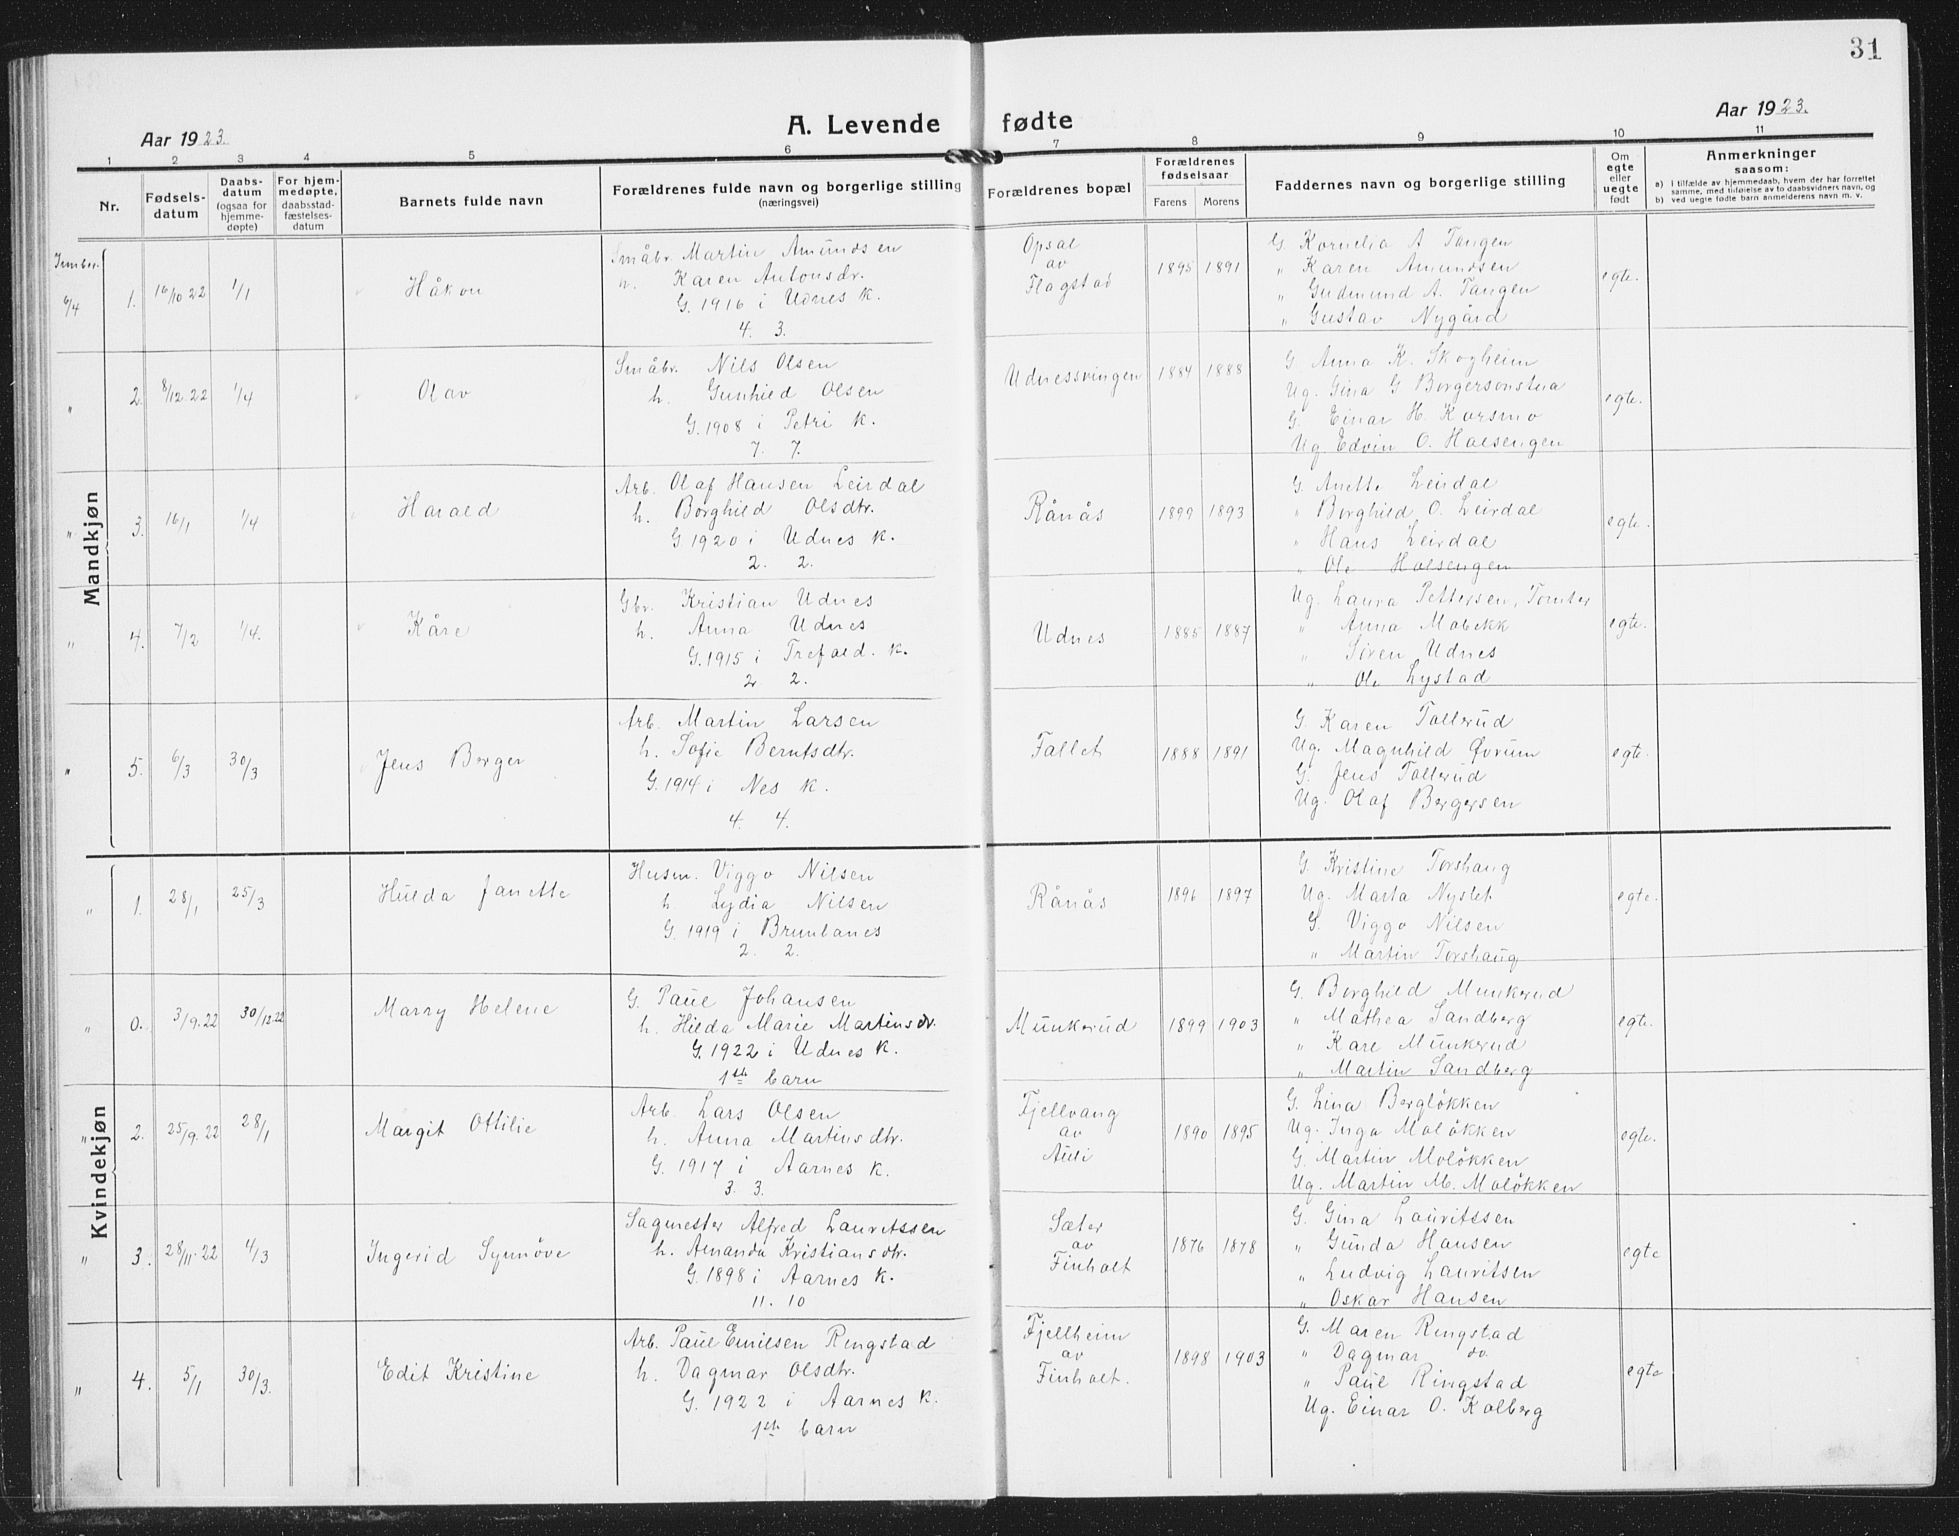 31
Aar 1923.
A. Levende fødte
Aar 1923.
1 2 3 4 5 6 7 8 9 10 11
Nr.
Fødselsdatum
Daabsdatum (ogsaa for hjemmedøpte)
For hjemmedøpte, daabsstadfæstelsesdatum
Barnets fulde navn
Forældrenes fulde navn og borgerlige stilling
(næringsvei)
Forældrenes bopæl
Forældrenes fødselsaar
Farens Morens
Faddernes navn og borgerlige stilling
Om egte eller uegte født
Anmerkninger
saasom:
a) i tilfælde av hjemmedaab, hvem der har forrettet samme, med tilføielse av to daabsvidners navn, og
b) ved uegte fødte barn anmelderens navn m. v.
Mandkjøn
6/4
1. 16/10 22 1/1 Håkon
Småbr. Martin Amundsen
h. Karen Antonsdr.
G. 1916 i Udnes K.
4. 3.
Opsal
av
Flagstad
1895 1891
G. Kornelia A Tangen
" Karen Amundsen
" Gudmund A. Tangen
" Gustav Nygård
egte.
" 2. 8/12 22 1/4 Olav
Småbr. Nils Olsen
h. Gunhild Olsen
G. 1908 i Petri K.
7. 7.
Udnessvingen
1884 1888
G Anna K. Skogheim
Ug. Gina G Borgersonstua
G. Einar H Korsmo
Ug. Edvin O. Halsengen
egte.
" 3. 16/1 1/4 Harald
Arb. Olaf Hansen Leirdal
h. Borghild Olsdtr.
G 1920 i Udnes K.
2. 2.
Rånås
1899 1893
G. Anette Leirdal
" Borghild O. Leirdal
" Hans Leirdal
" Ole Halsengen
egte.
" 4. 7/2 1/4. Kåre
Gbr. Kristian Udnes
h. Anna Udnes
G. 1915 i Trefold. K.
2 2.
Udnes
1885 1887
Ug. Laura Pettersen, Tomter
" Anna Mobekk
" Søren Udnes
" Ole Lystad
egte.
" 5. 6/3 30/3 Jens Berger
Arb. Martin Larsen
h. Sofie Berntsdtr.
G. 1914 i Nes K.
4. 4.
Fallet
1888 1891
G. Karen Tollerud
Ug. Magnhild Øvrum
G. Jens Tollerud
Ug. Olaf Bergersen
egte.
Kvindekjøn
" 1. 28/1 25/3 Hulda Janette
Husm. Viggo Nilsen
h. Lydia Nilsen
G. 1919 i Brunlanes
2. 2.
Rånås
1896 1897
G. Kristine Torshaug
Ug. Marta Nyslet
G. Viggo Nilsen
" Martin Torshaug
egte.
" 0. 3/9.22 30/12.22 Marry Helene
G. Paul Johansen
h. Hilda Marie Martinsdr.
G. 1922 i Udnes K.
1ste barn
Munkerud
1899 1903
G. Borghild Munkerud
" Mathea Sandberg
" Kare Munkerud
" Martin Sandberg
egte.
" 2. 25/9.22 28/1 Margit Ottilie
Arb. Lars Olsen
h. Anna Martinsdtr.
G. 1917 i Aarnes K.
3. 3.
Fjellvang
av
Auli
1890 1895
G. Lina Bergløkken
Ug. Inga Moløkken
G. Martin Moløkken
Ug. Martin M. Moløkken
egte.
" 3. 28/11.22 4/3 Ingerid Synnøve
Sagmester Alfred Lauritssen
h. Amanda Kristiansdtr.
G. 1898 i Aarnes K.
11. 10
Sæter
av
Finholt
1876 1878
G. Gina Lauritssen
" Gunda Hansen
" Ludvig Lauritsen
" Oskar Hansen
egte
" 4. 5/1 30/3. Edit Kristine
Arb. Paul Emilsen Ringstad
h. Dagmar Olsdtr.
G. 1922 i Aarnes K.
1ste barn
Fjellheim
av
Finholt.
1898 1903
G. Maren Ringstad
" Dagmar do.
" Paul Ringstad
Ug. Einar O. Kolberg
egte